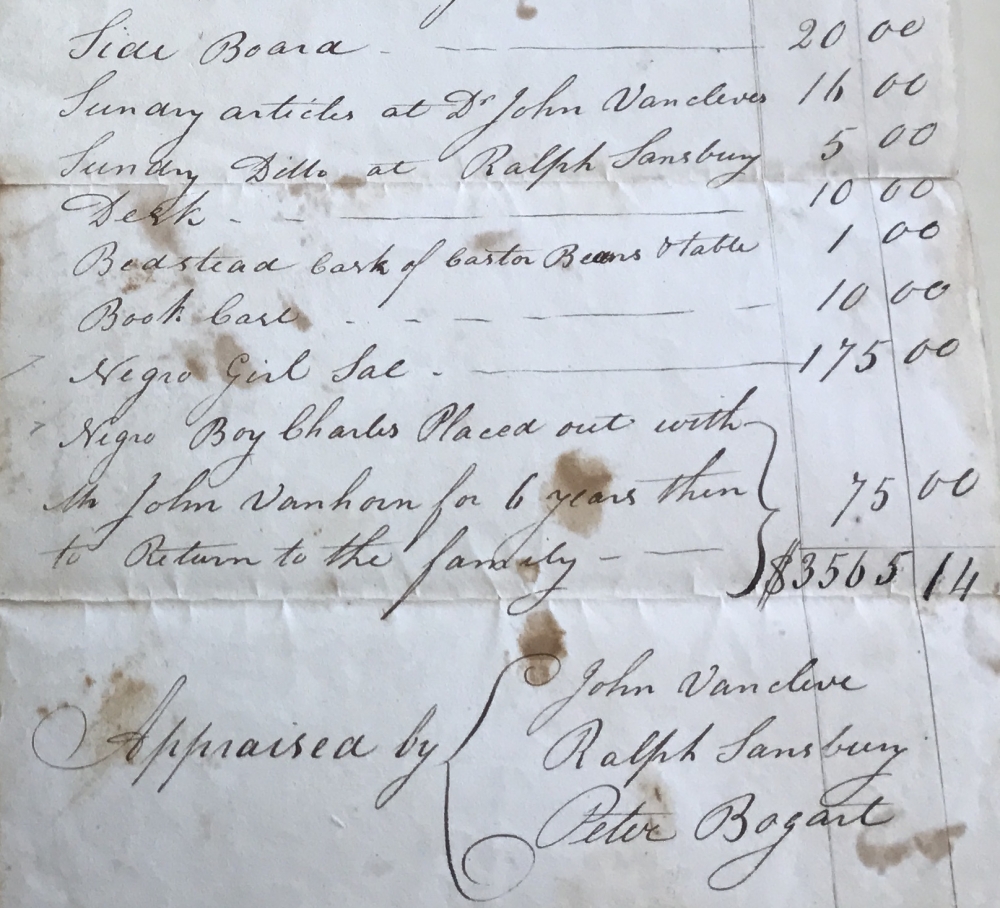 Side Board - 20 00
Sundry articles at Dr John Vancleves 16 00
Sundry Ditto at Ralph Sansbury 5 00
Desk - - 10 00
Bedstead Cask of Castor Beans & table 1 00
Book Case - - - 10 00
Negro Girl Sal - 175 00
Negro Boy Charles Placed out with
Mr John Vanhorn for 6 years then 75 00
to Return to the family -
$3565 14
Appraised by
John Vancleve
Ralph Sansbury
Peter Bogart